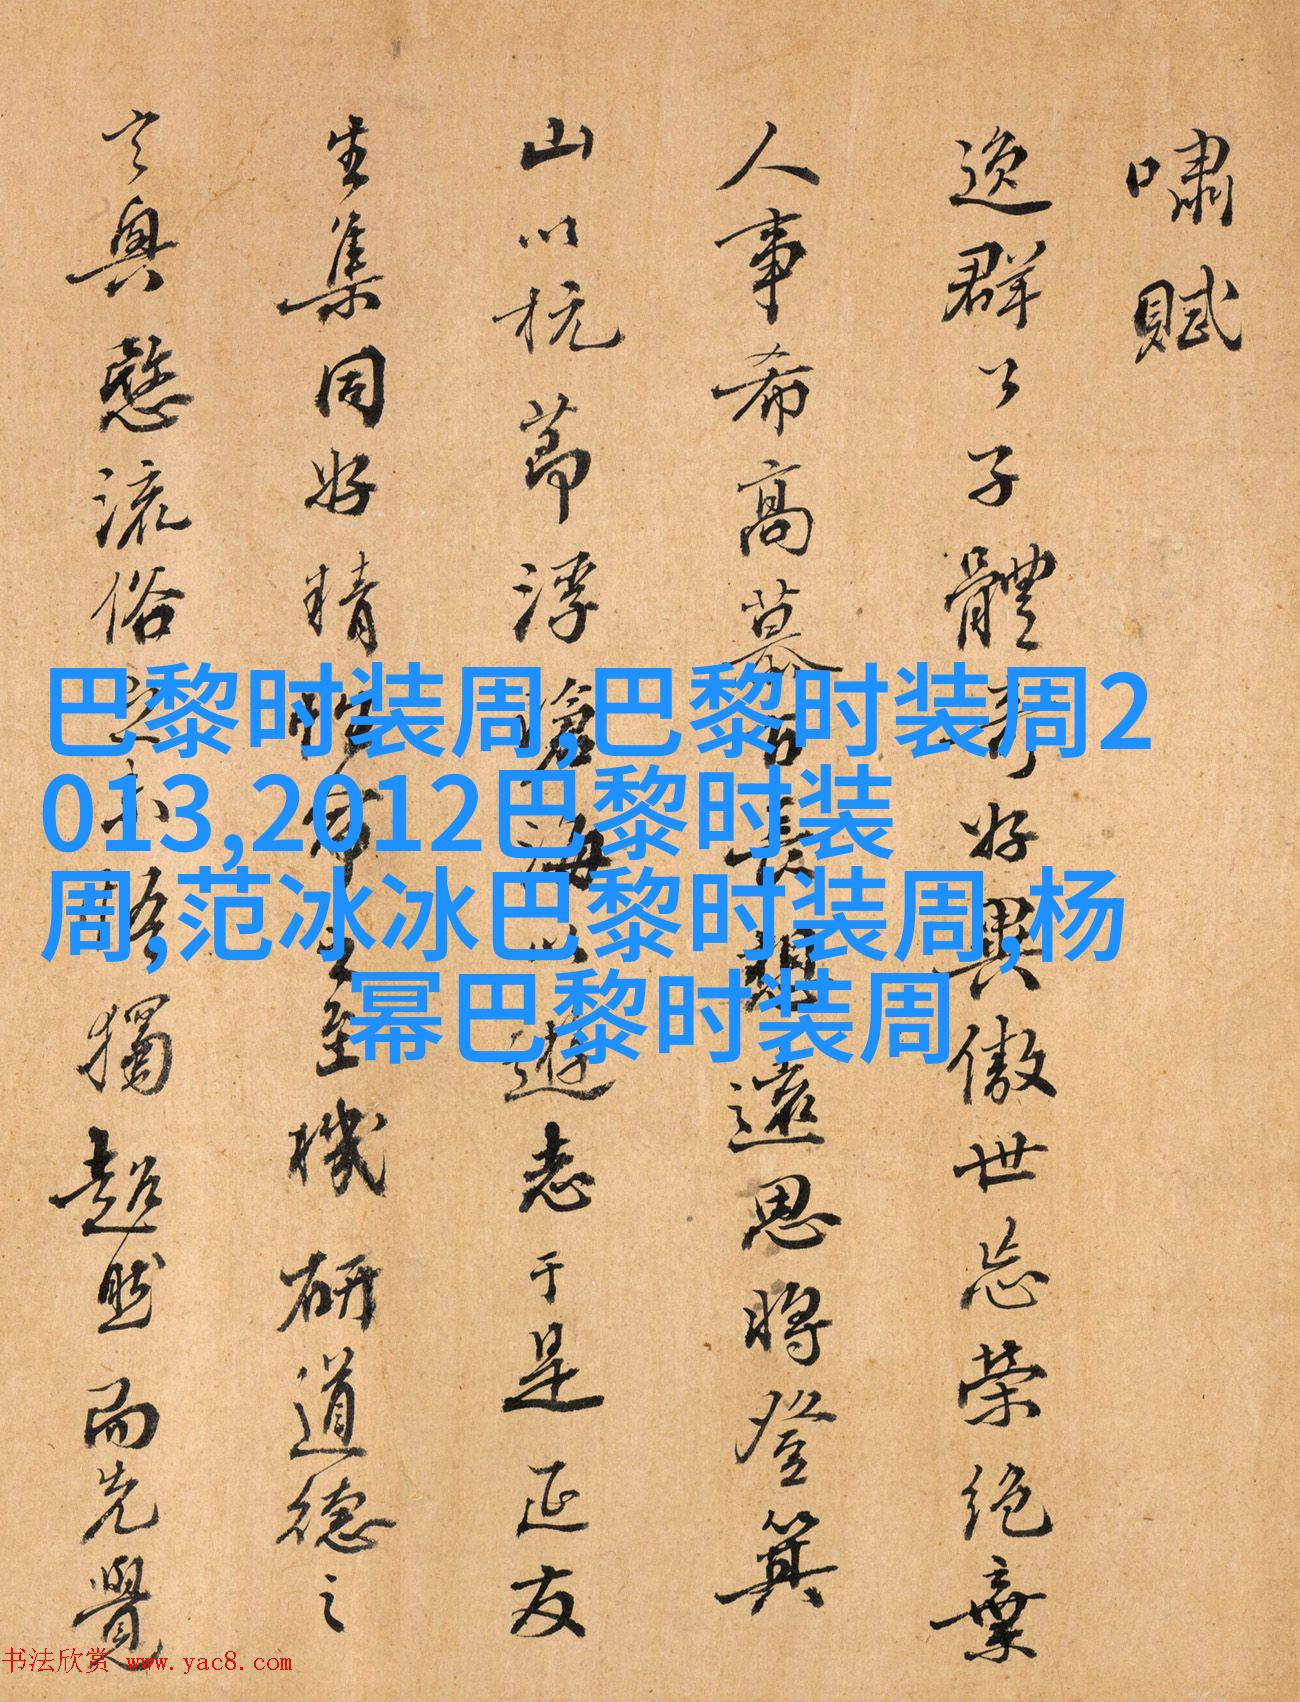 嘯賦
逸群公子體奇好異傲世忘榮絕棄
人事希高慕古長想遠思將登箕
山以抗節浮滄海以遊志于是延友
生集同好精性命之至機研道德之
玄奧愍流俗之未悟獨超然而先覺
巴黎时装周,巴黎时装周2
013,2012巴黎时装
周,范冰冰巴黎时装周,杨
幂巴黎时装周
书法欣赏 www.yac8.com